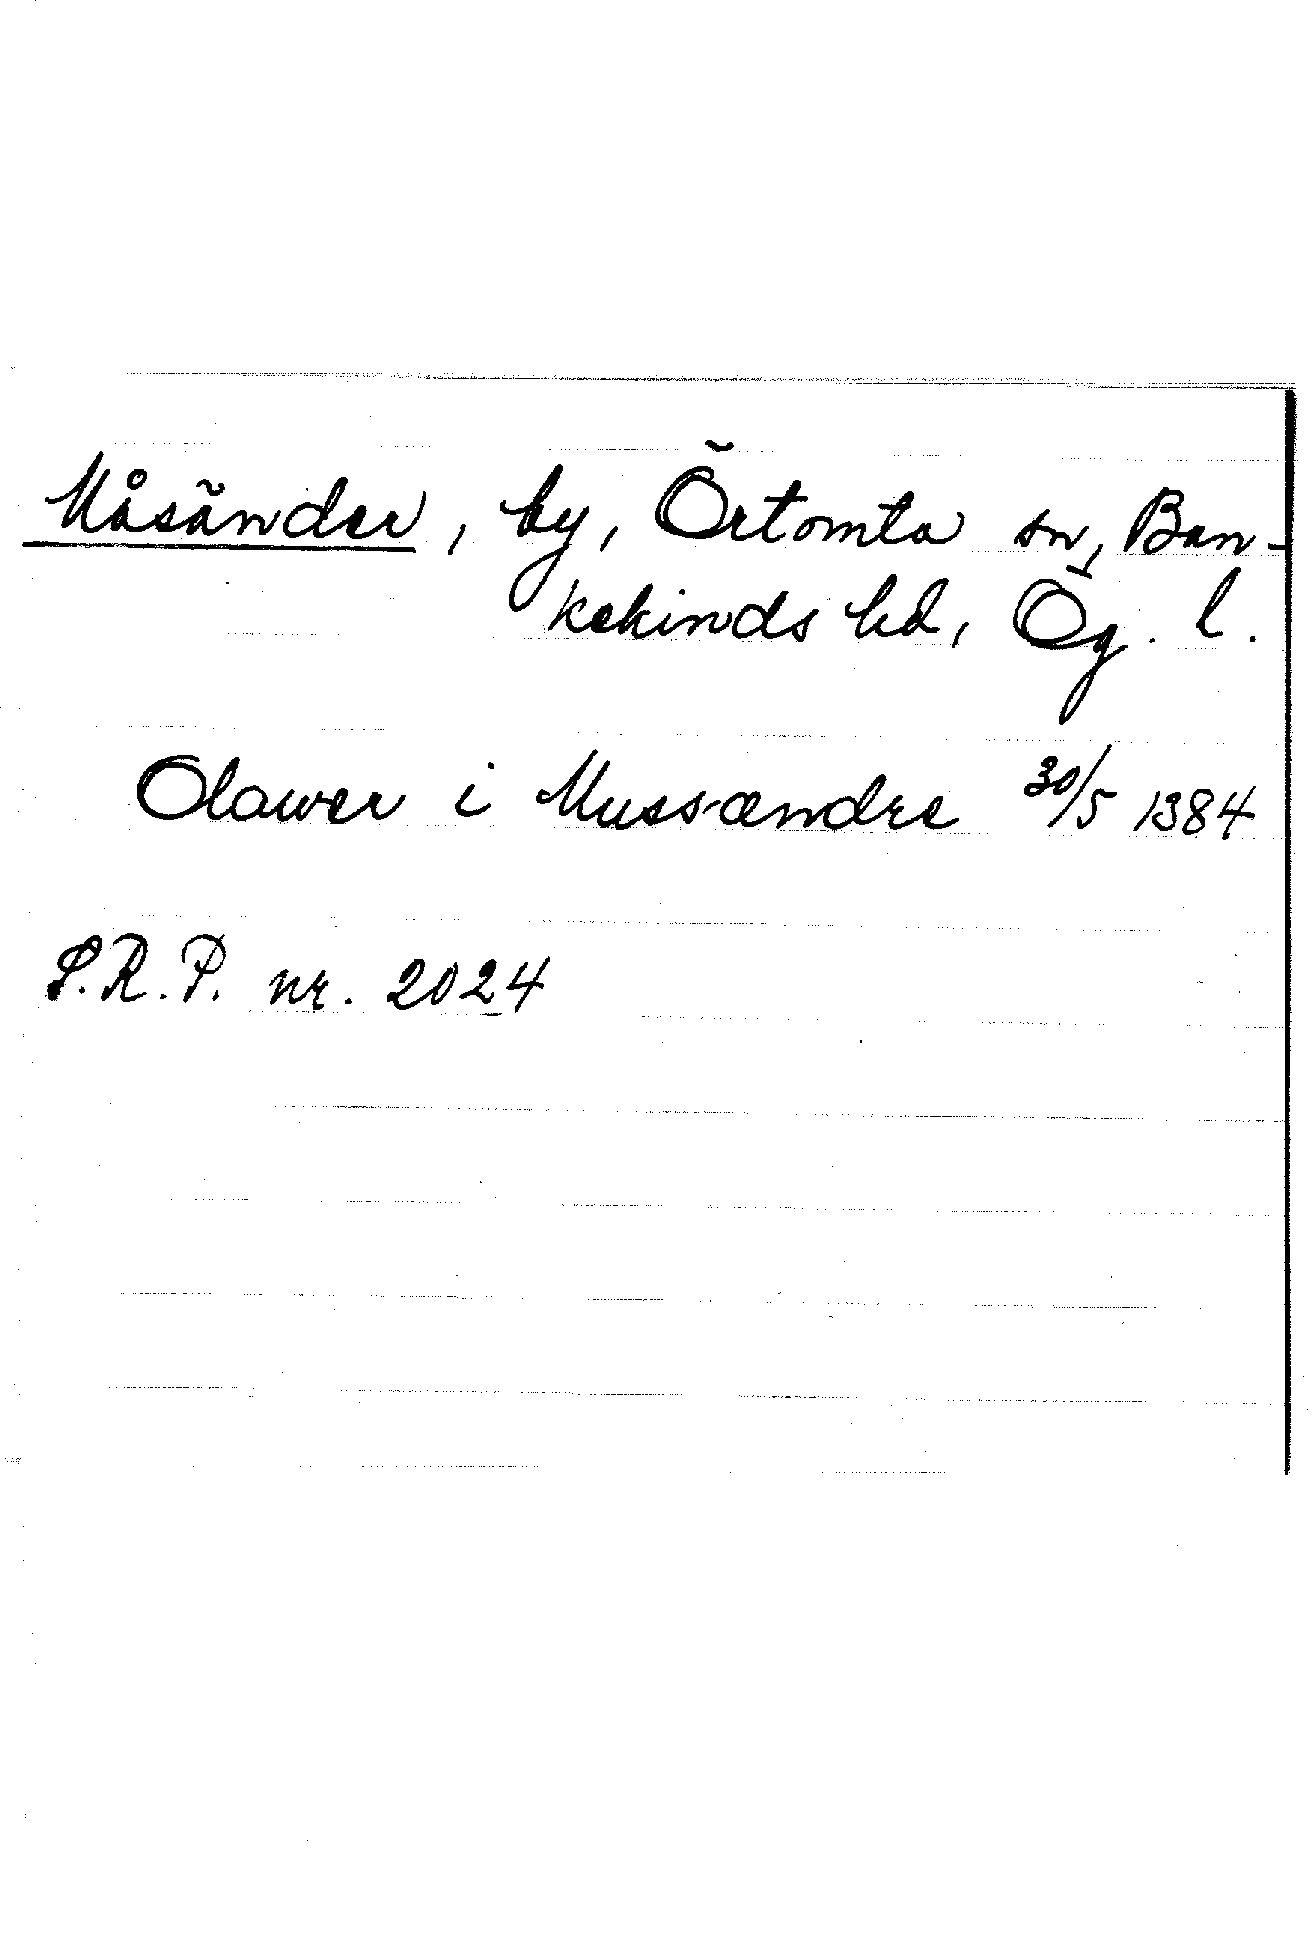 Måsänder, by, Örtomta sn, Ban-
kekinds hd, Ög. l.
Olawer i Mussændre 30/5 1384
S.R.P. nr. 2024